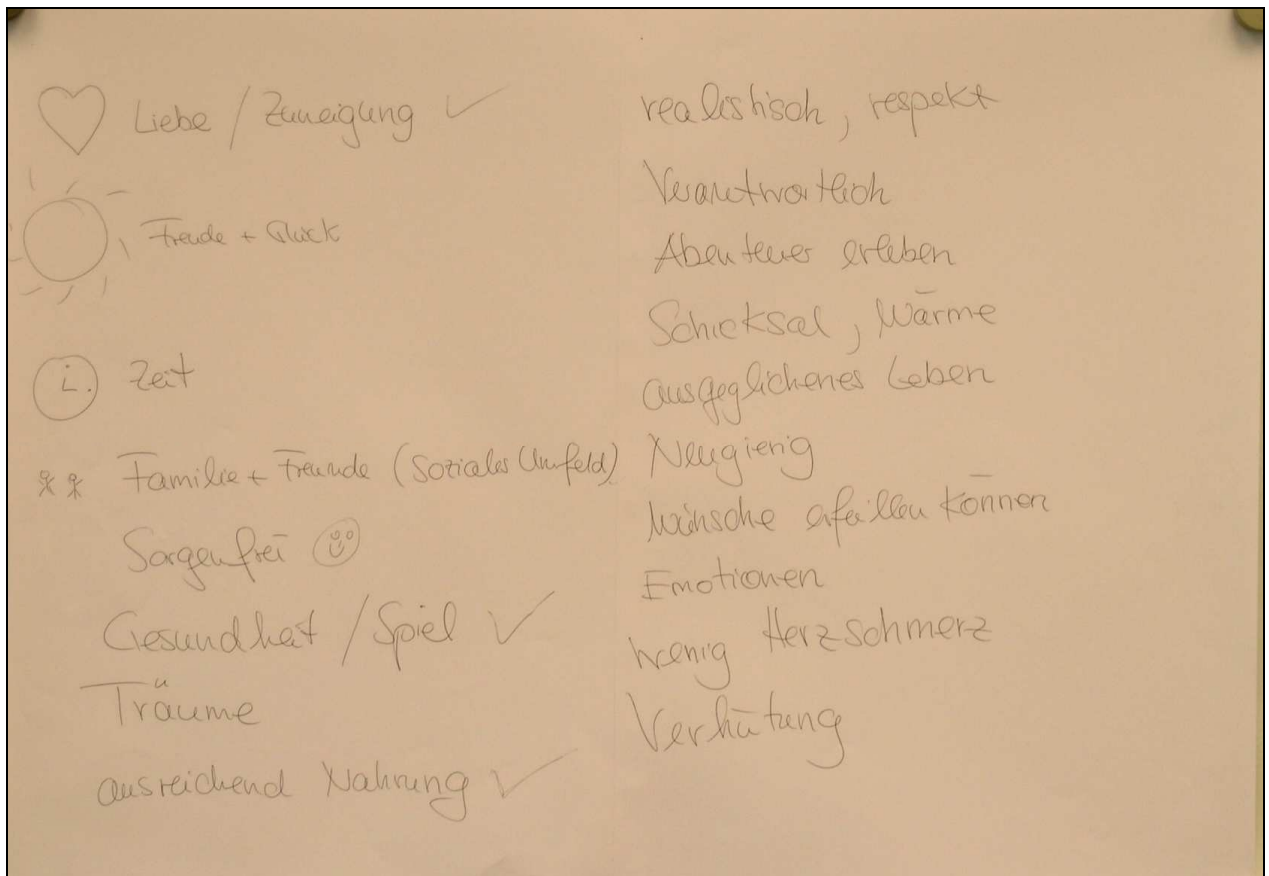 Liebe / Zuneigung ✓
Freude + Glück
Zeit
Familie + Freunde (Soziales Umfeld)
Sorgenfrei
Gesundheit / Spiel ✓
Träume
ausreichend Nahrung ✓
realistisch, respekt
Verantwortlich
Abenteuer erleben
Schicksal, Wärme
ausgeglichenes Leben
Neugierig
Wünsche erfüllen können
Emotionen
wenig Herzschmerz
Verhütung